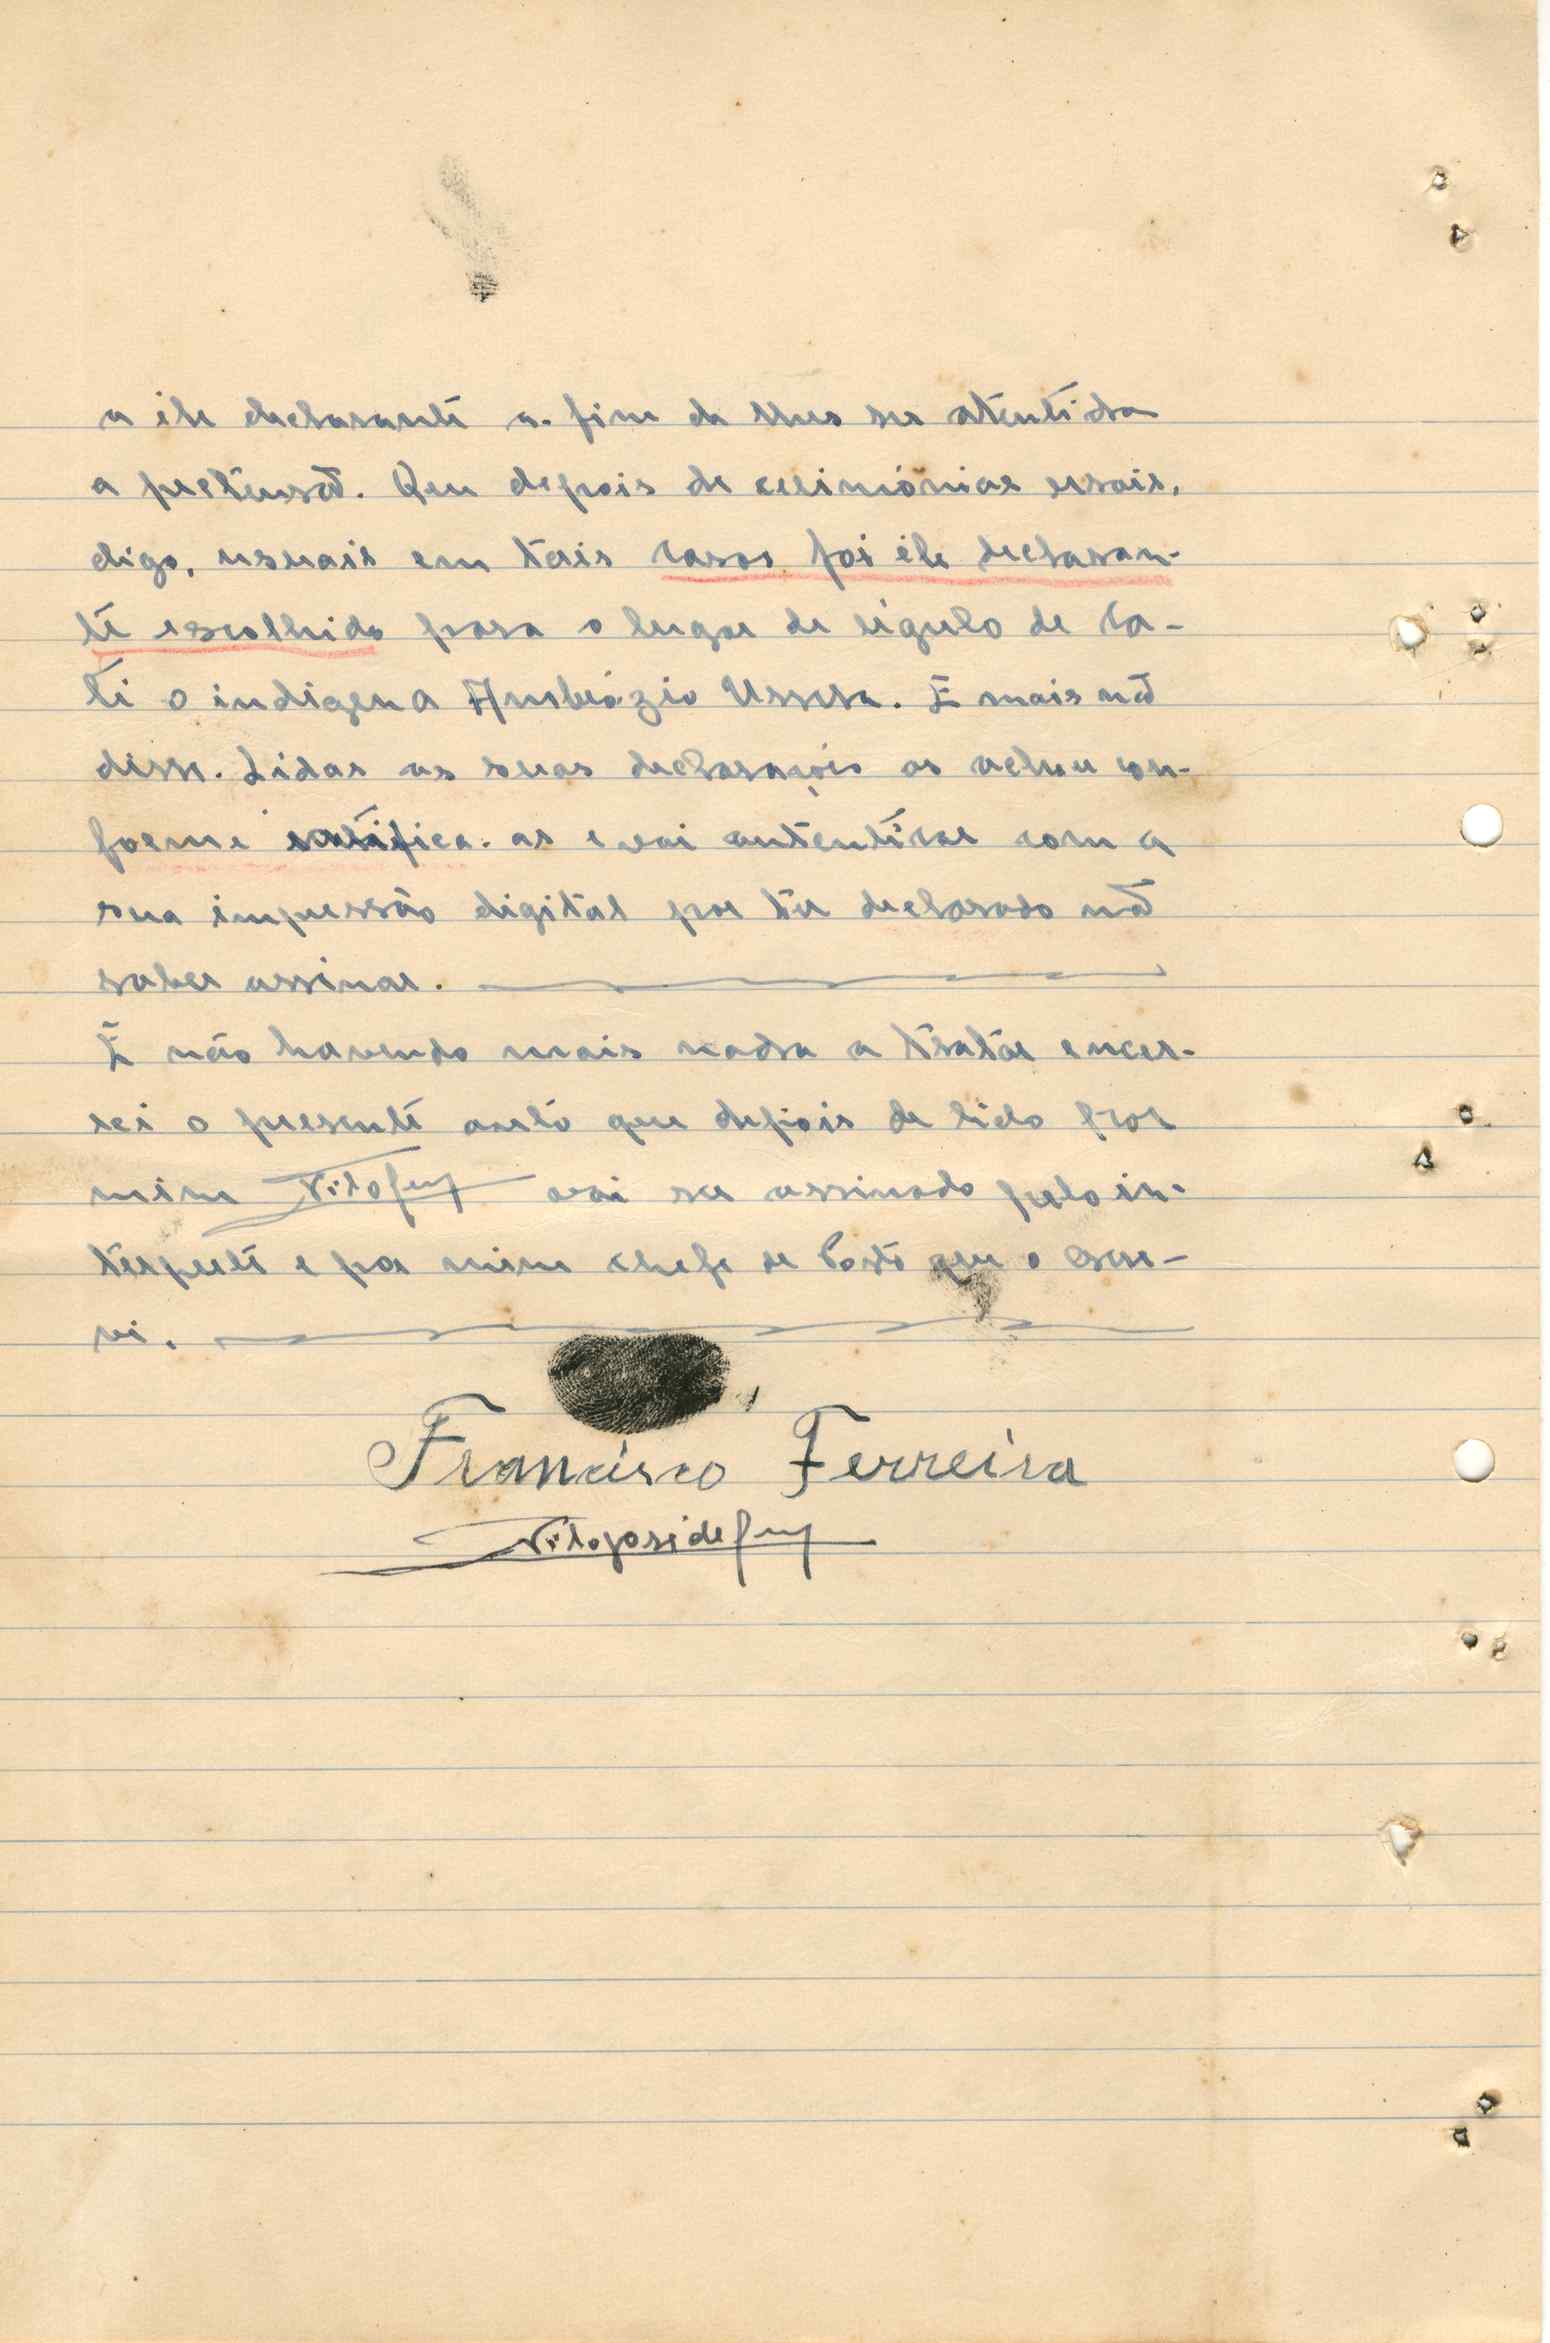 a êle declarante a-fim de lhes ser atentida
a pretensão. Que depois de cerimónias usais,
digo, usuais em tais casos foi êle declaran-
te escolhido para o lugar de régulo de Ca-
ti o indigena Ambrózio Ussera. E mais não
disse. Lidas as suas declarações as achou con-
forme ratifica-as e vai autenticar com a
sua impressão digital por ter declarado não
saber assinar.
E não havendo mais nada a tratar encer-
rei o presente auto que depois de lido por
mim vai ser assinado pelo in-
térprete e por mim chefe de Posto que o escre-
vi.
Francisco Ferreira
Vito José de